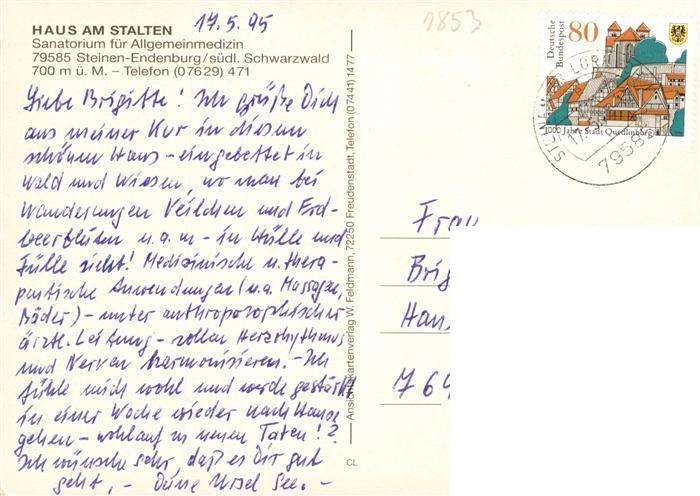 HAUS AM STALTEN 17.5.95
Sanatorium für Allgemeinmedizin
79585 Steinen-Endenburg/südl. Schwarzwald
700 m ü. M. – Telefon (07629) 471
Liebe Brigitte! Ich grüße Dich
aus meiner Kur in diesem
schönen Haus – eingebettet in
Wald und Wiesen, wo man bei
Wanderungen Veilchen und Erd-
beerblüten u.a.m – in Hülle und
Fülle sieht! Medizinische u. thera-
peutische Anwendungen (u.a. Massagen,
Bäder) – unter anthroposophischer
ärztl. Leitung – sollen Herzrhythmus
und Nerven harmonisieren. – Ich
fühle mich wohl und werde gestärkt
in einer Woche wieder nach Hause
gehen – wohlauf zu neuen Taten!?
Ich wünsche sehr, daß es Dir gut
geht, – Deine Ursel See. –
Ansichtskartenverlag W. Feldmann, 72250 Freudenstadt, Telefon (07441) 1477
CL
1853
Deutsche
Bundespost
80
1000 Jahre Stadt Quedlinburg
STEINEN
7958
Frau
Brig
Han
764